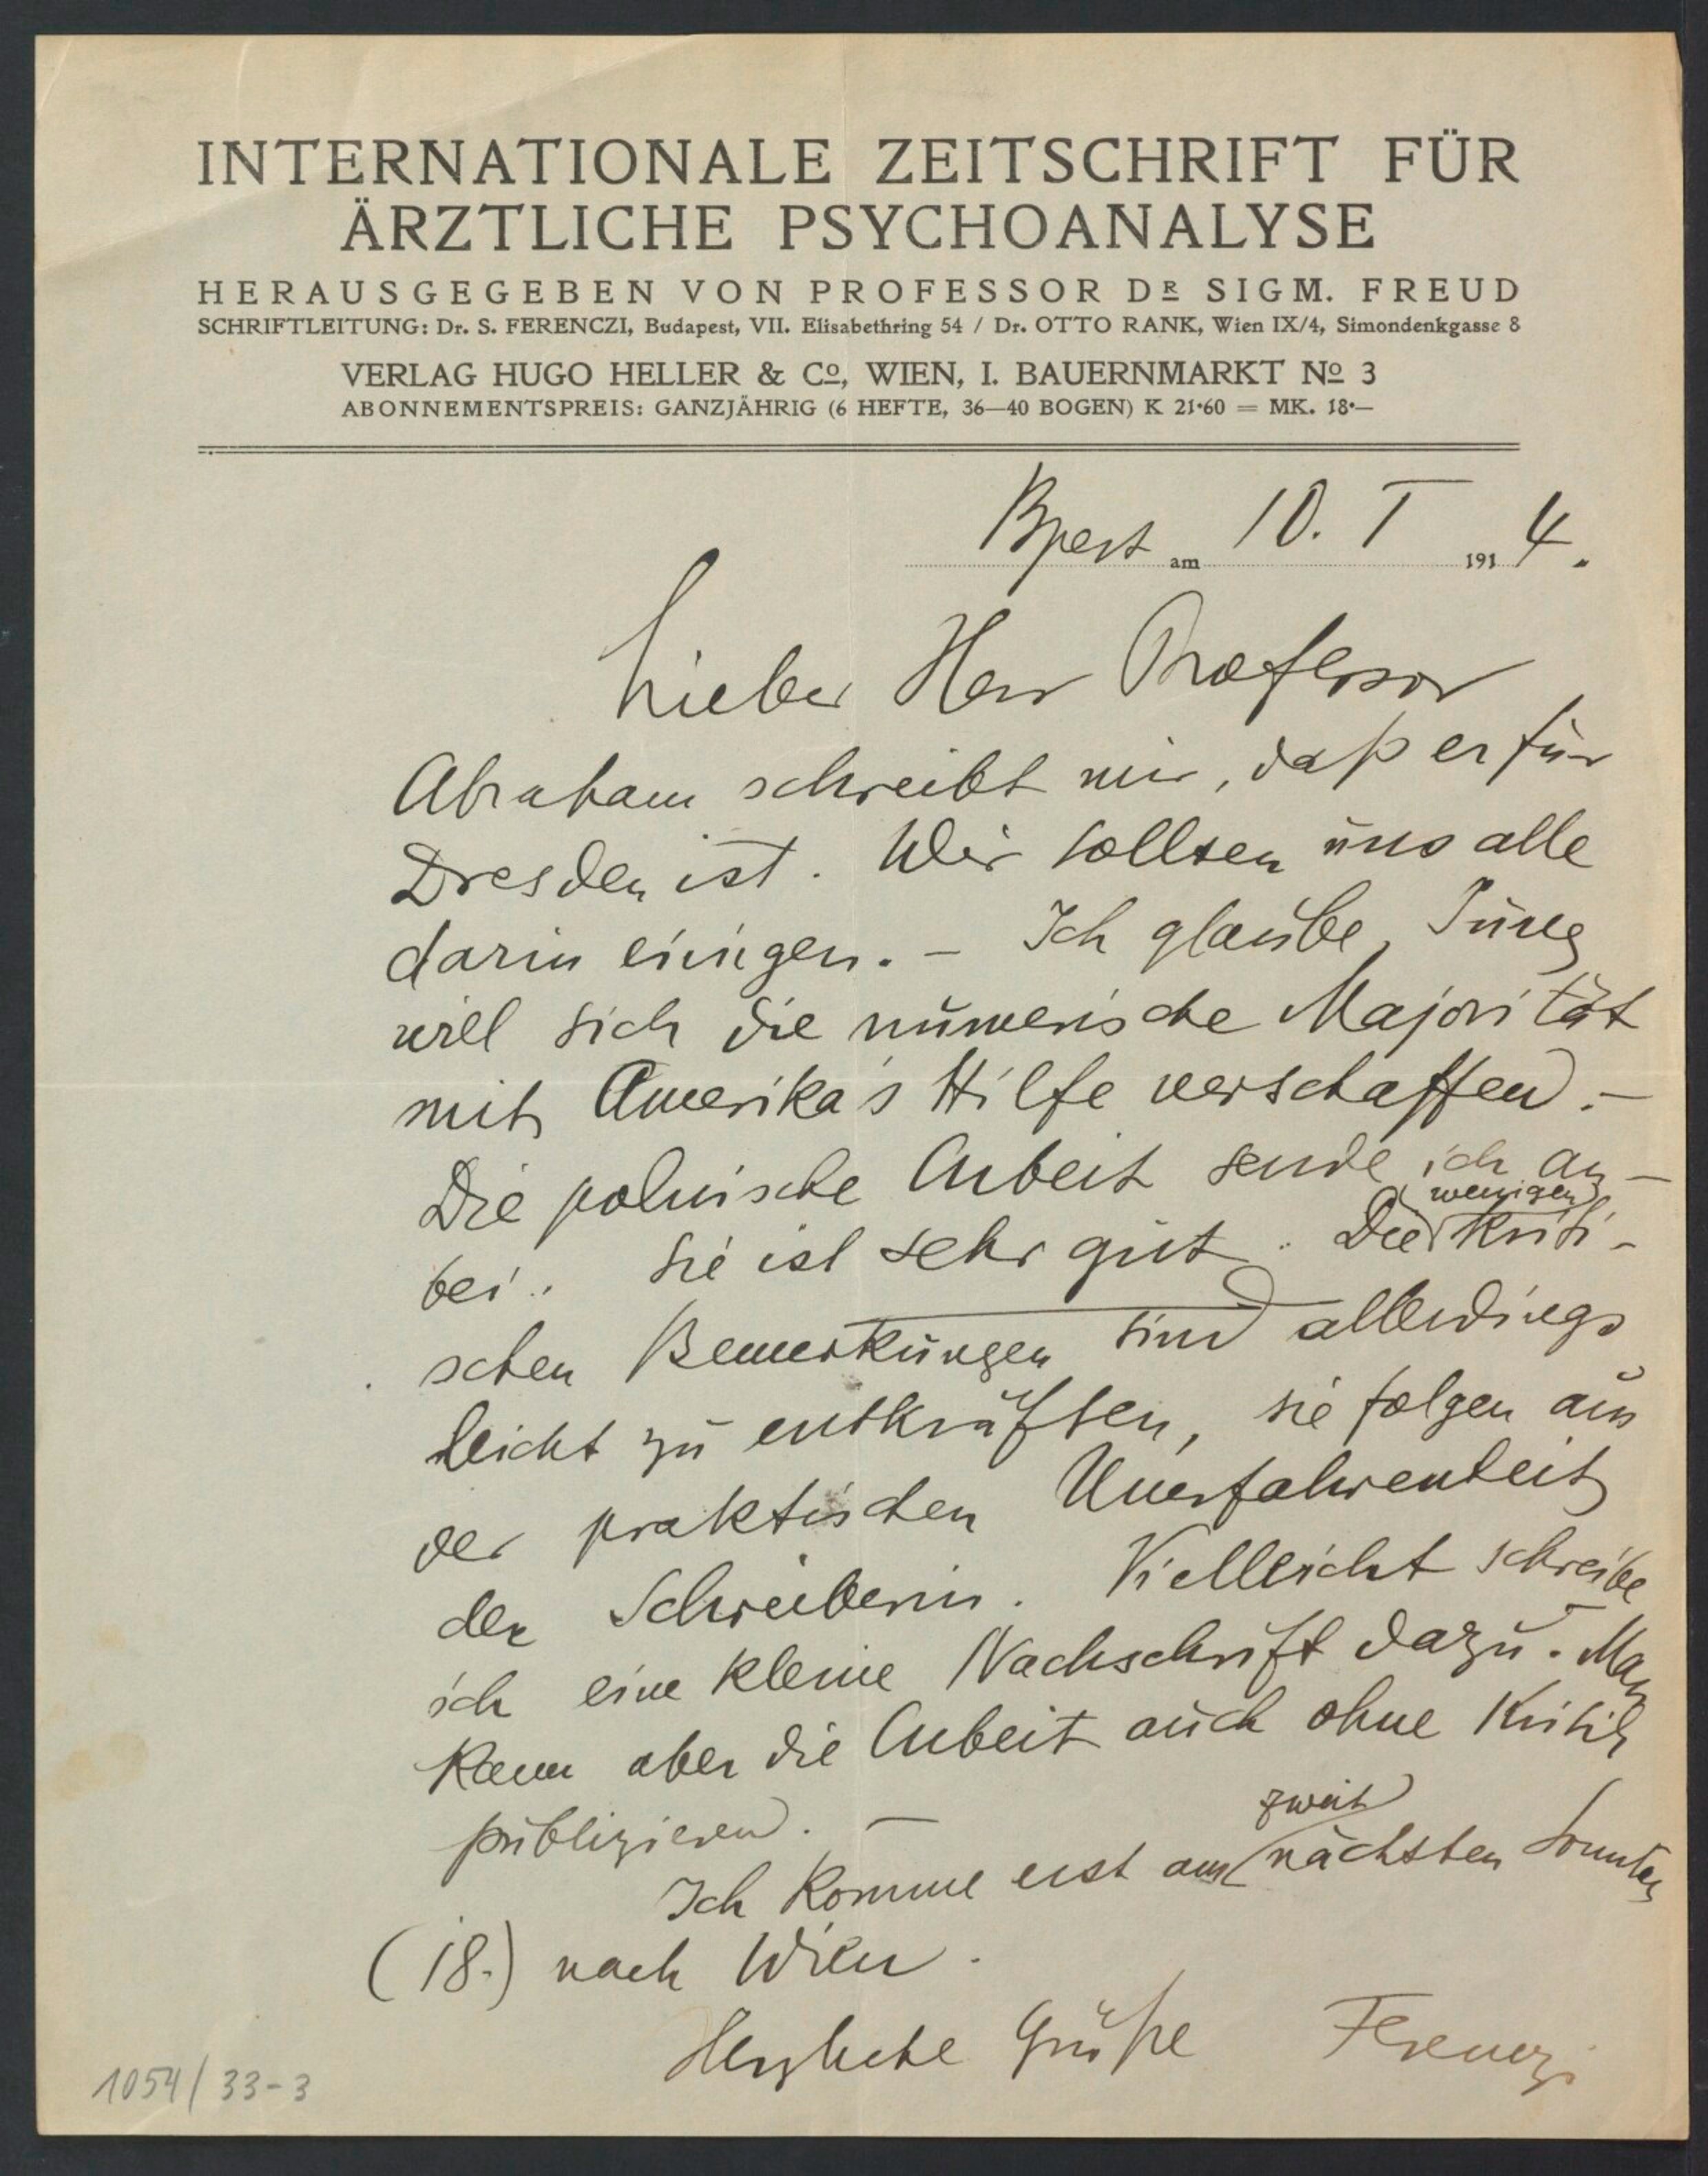 INTERNATIONALE ZEITSCHRIFT FÜR
ÄRZTLICHE PSYCHOANALYSE
HERAUSGEGEBEN VON PROFESSOR DR SIGM. FREUD
SCHRIFTLEITUNG: Dr. S. FERENCZI, Budapest, VII. Elisabethring 54 / Dr. OTTO RANK, Wien IX/4, Simondenkgasse 8
VERLAG HUGO HELLER & Co, WIEN, I. BAUERNMARKT No 3
ABONNEMENTSPREIS: GANZJÄHRIG (6 HEFTE, 36—40 BOGEN) K 21·60 = MK. 18·—
Bpest am 10. I 1914.
Lieber Herr Professor
Abraham schreibt mir, daß er für
Dresden ist. Wir sollten uns alle
darin einigen. – Ich glaube, Jung
will sich die numerische Majorität
mit Amerika's Hilfe verschaffen. –
Die polnische Arbeit sende ich an-
bei. Sie ist sehr gut. Die (wenigen) kriti-
schen Bemerkungen sind allerdings
leicht zu entkräften, sie folgen aus
der praktischen Unerfahrenheit
der Schreiberin. Vielleicht schreibe
ich eine kleine Nachschrift dazu. Man
kann aber die Arbeit auch ohne Kritik
publizieren. –
Ich komme erst am zweit nächsten Sonntag
(18.) nach Wien.
Herzliche Grüße Ferenczi
1054/33-3